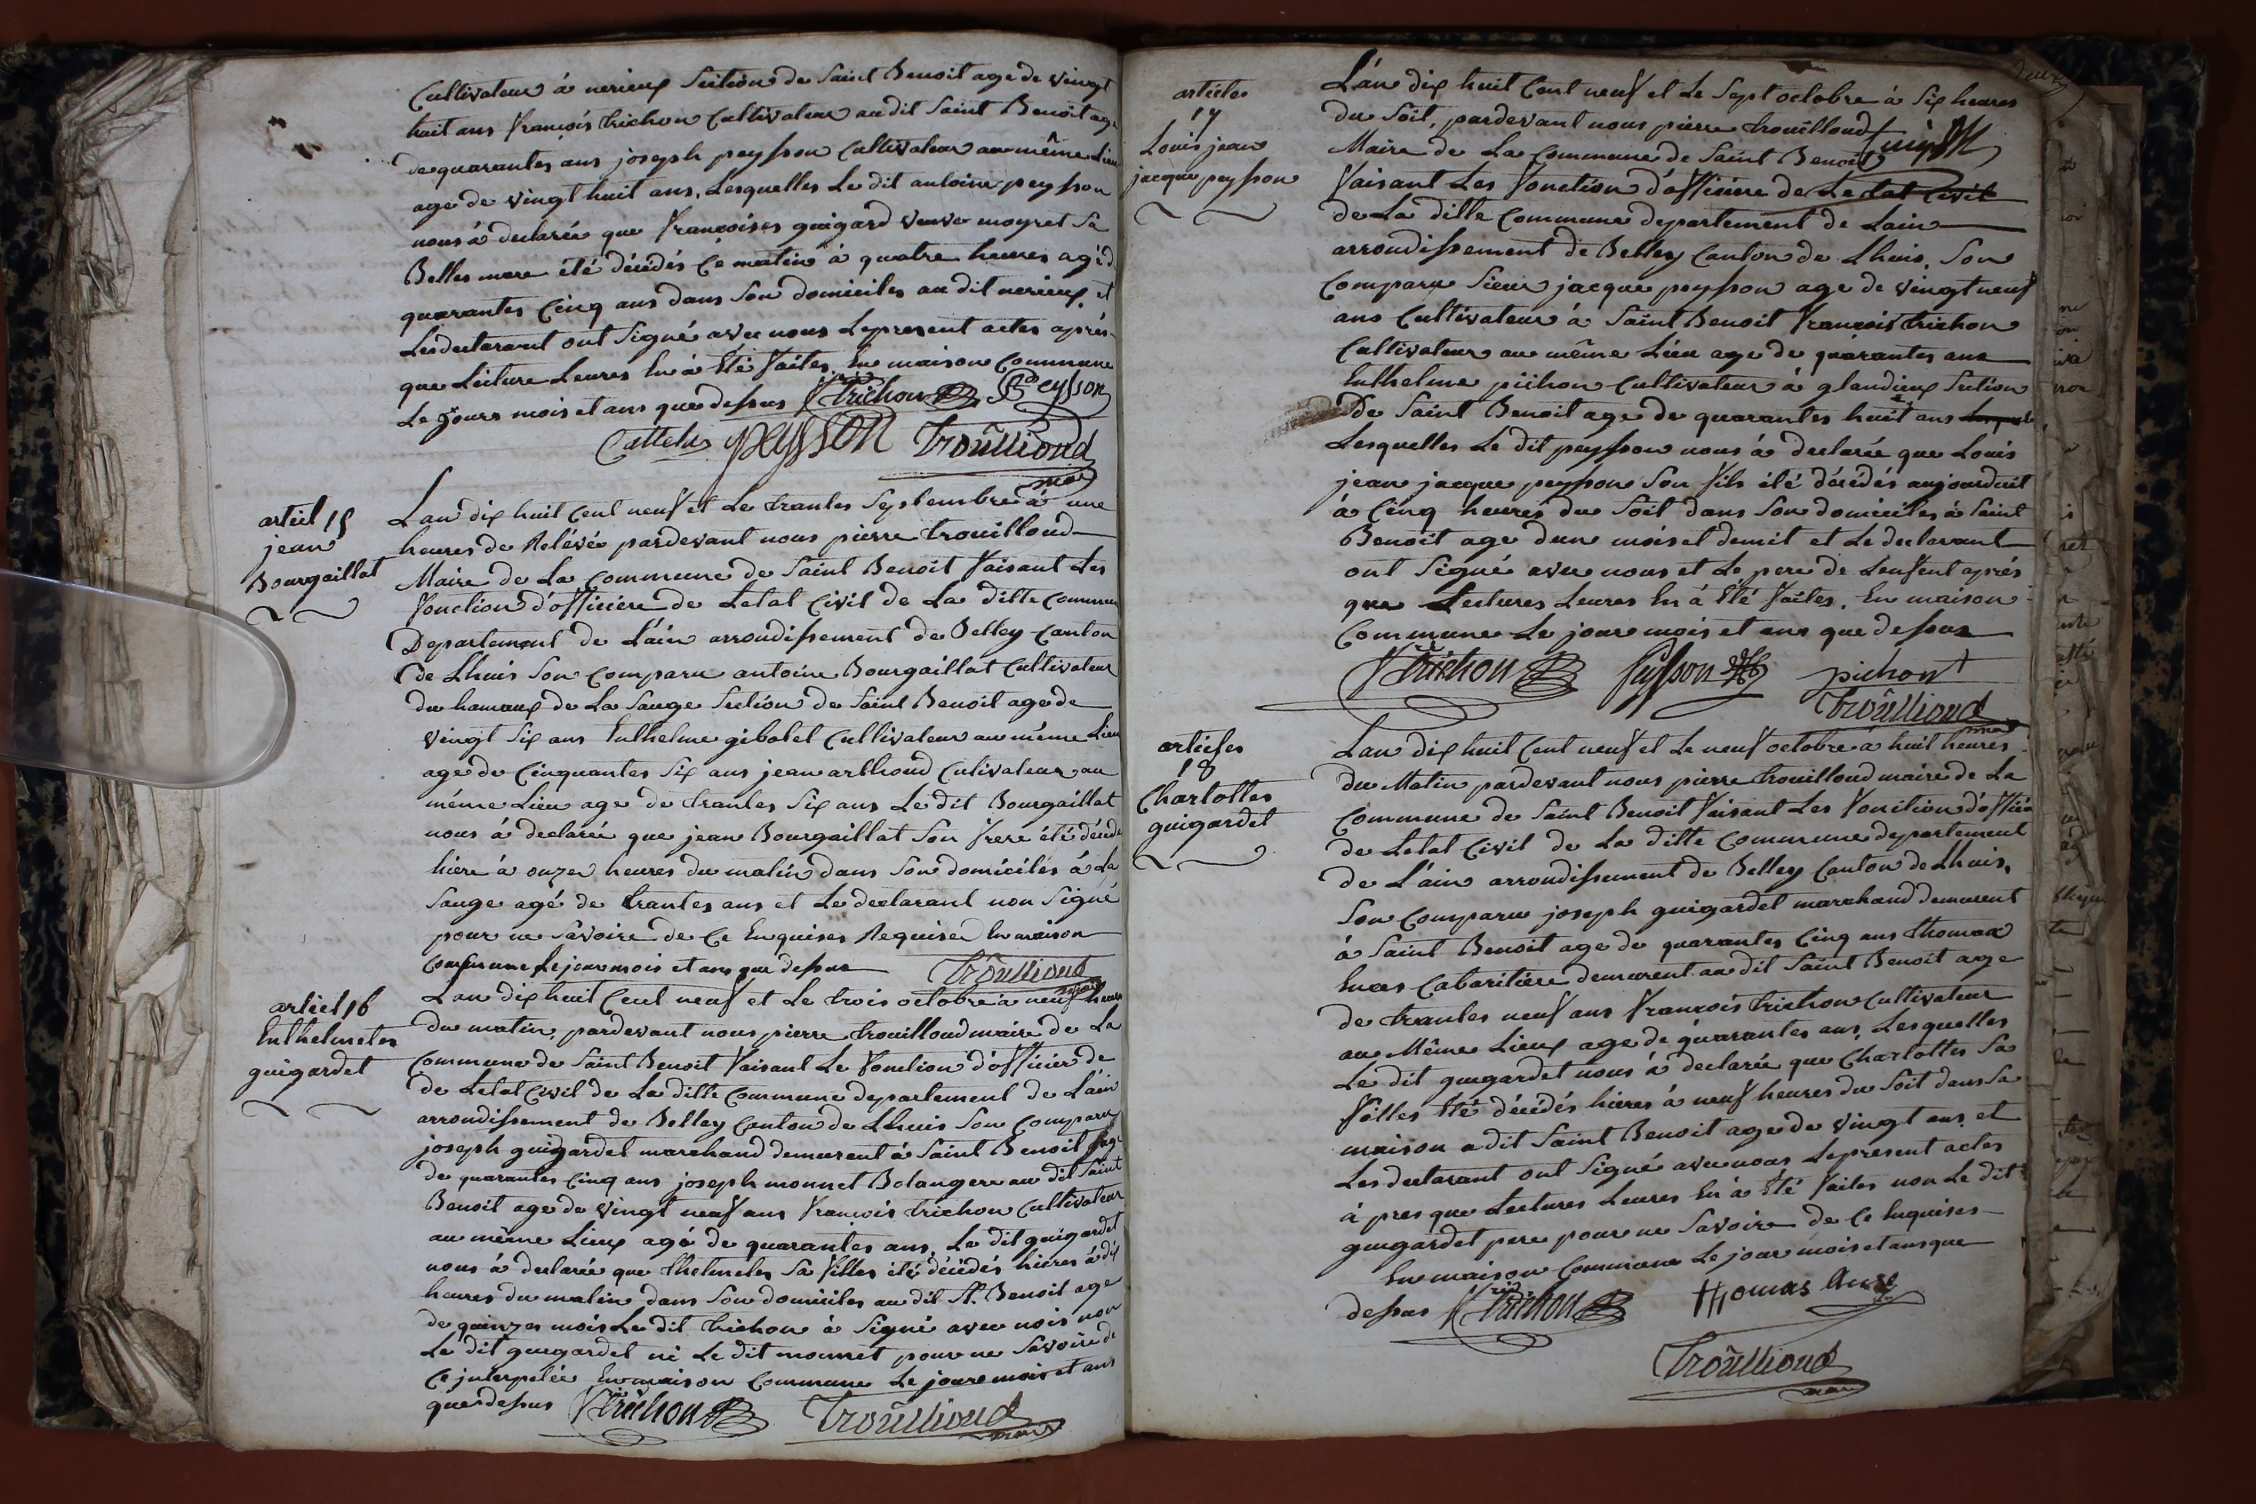 Cultivateur à nerieux Section de Saint Benoit age de vingt
huit ans françois trichon Cultivateur au dit Saint Benoit age
de quarantes ans joseph peysson Cultivateur au même Lieu
age de vingt huit ans, Lesquelles Le dit antoine peysson
nous á declarée que françoises guigard veuve moyret Sa
Belles mere été décédés Ce matin à quatre heures agé d
quarantes Cinq ans dans Son domiciles au dit nerieux, et
Les declarant ont Signé avec nous Lepresent actes aprés
que Lecture Leures En á Eté faites. En maison Commune
Le Jours mois et ans que dessus ftrichon Peysson
peysson Trouilloud
maire
artiel 15
jean
Bourgaillat
Lan dix huit Cent neuf et Le trantes Septembre à une
heures de Relévée pardevant nous pierre trouilloud
Maire de La Commune de Saint Benoit faisant Les
fonction d'officiere de Letat Civil de La ditte Commune
Departement de L'ain arrondissement de Belley Canton
de Lhuis Son Comparu antoine Bourgaillat Cultivateur
du hamaux de La Sauge Section de Saint Benoit age de
vingt Six ans Enthelme gibolet Cultivateur au même Lieu
age de Cinquantes Six ans jean arthoud Cutivateur au
même Lieu age de trantes Six ans Le dit Bourgaillat
nous á declarée que jean Bourgaillat Son frere été décéde
hière à onze heures du matin dans Son domicilés á La
Sauge agé de trantes ans et Le declarant non Signé
pour ne Sàvoire de Ce Enquises Requise En maison
Commune Le jour mois et ans que dessus Trouilloud
maire
artiel 16
Enthelmetes
guigardet
Lan dix huit Cent neuf et Le trois octobre à neuf heures
du matin, pardevant nous pierre trouilloud maire de La
Commune de Saint Benoit faisant Le fonction d'officier de
de Letat Civil de La ditte Commune departement de L'ain
arrondissement de Belley Canton de Lhuis Son Comparu
joseph guigardet marchand demurent à Saint Benoit age
de quarantes Cinq ans joseph monnet Bolangere au dit Saint
Benoit age de vingt neuf ans françois trichon Cultivateur
au même Lieux agé de quarantes ans, Le dit guigardet
nous á declarée que thelmetes Sa filles été décédés hieres á dix
heures du matin dans Son domiciles au dit St. Benoit age
de quinzes mois Le dit trichon à Signé avec nois non
Le dit guigardet ni Le dit monnet pour ne Savoire de
Ce jnterpelée En maison Commune Le joure mois et ans
que dessus ftrichon Trouilloud
maire
article
17
Louis jean
jacque peysson
L'an dix huit Cent neuf et Le Sept octobre à Six heures
du Soit, pardevant nous pierre trouilloud
Maire de La Commune de Saint Benoit
faisant Les fonction d'officiere de Letat Civil
de La ditte Commune departement de Lain
arrondissement de Belley Canton de Lhuis, Son
Comparu Sieur jacque peysson age de vingt neuf
ans Cultivateur à Saint Benoit francois trichon
Cultivateur au même Lieu age de quarantes ans
Enthelme pichon Cultivateur à glandieux Section
De Saint Benoit age de quarantes huit ans
Lesquelles Le dit peysson nous á declarée que Louis
jean jacque peysson Son fils été décédés aujourduit
á Cinq heures du Soit dans Son domiciles à Saint
Benoit age dun mois et demit et Le declarant
ont Signé avec nous et Le pere de Lenfent aprés
que Lectures Leures En á Eté faites. En maison
Commune Le joure mois et ans que dessus
ftrichon peysson pichont
Trouilloud
maire
articles
18
Charlottes
guigardet
Lan dix huit Cent neuf et Le neuf octobre à huit heures
du Matin pardevant nous pierre trouilloud maire de La
Commune de Saint Benoit faisant Les fonction d'officie
de Letat Civil de La ditte Commune departement
de L'ain arrondissement de Belley Canton de Lhuis,
Son Comparu joseph guigardet marchand demurent
à Saint Benoit age de quarantes Cinq ans thomas
Cabaritiére demurent au dit Saint Benoit age
de trantes neuf ans françois trichon Cultivateur
au Même Lieux age de quarantes ans, Lesquelles
Le dit guigardet nous á declarée que Charlottes Sa
filles Eté décédés hieres à neuf heures du Soit dans Sa
maison a dit Saint Benoit age de vingt ans et
Les declarant ont Signé avec nous Le present actes
á pres que Lectures Leures En à Eté faites non Le dit
guigardet pere pour ne Savoire de Ce Enquises
En maison Commune Le jour mois et ans que
dessus ftrichon THomas
Trouilloud
maire